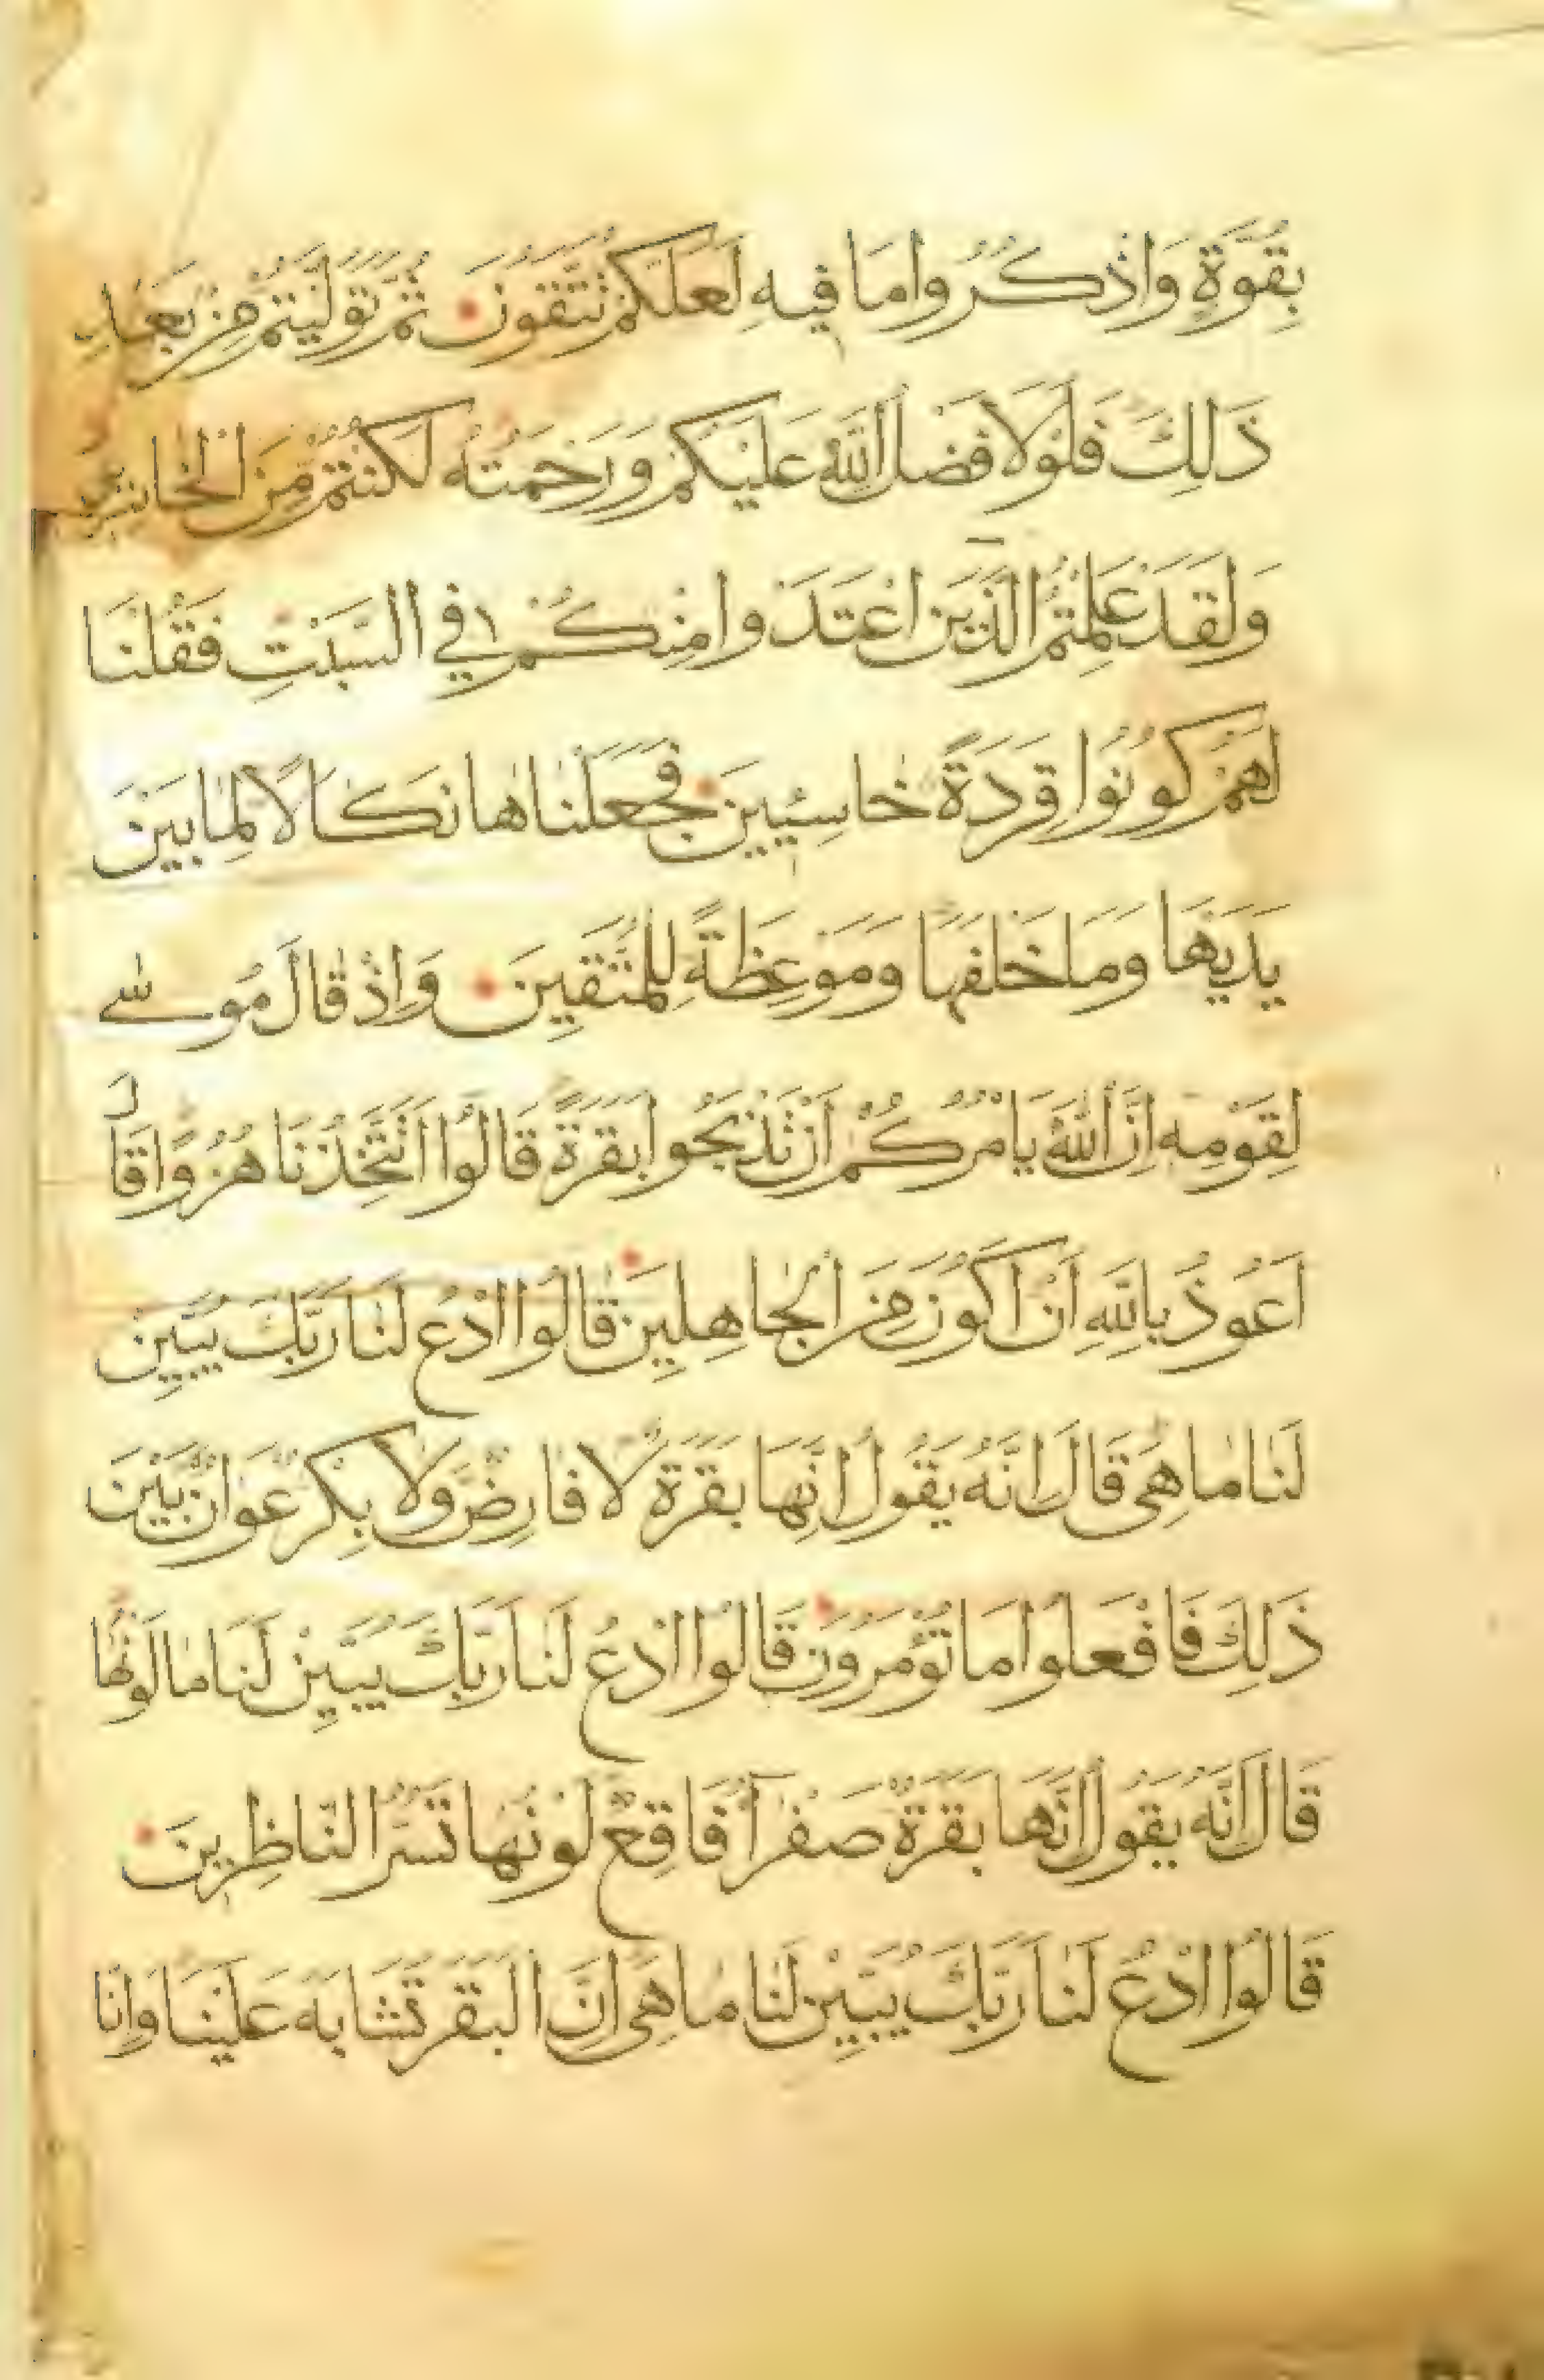 بِقُوَّةٍ وَاذْكُرُوا مَا فِيهِ لَعَلَّكُمْ تَتَّقُونَ ثُمَّ تَوَلَّيْتُمْ مِنْ بَعْدِ
ذَلِكَ فَلَوْلَا فَضْلُ اللَّهِ عَلَيْكُمْ وَرَحْمَتُهُ لَكُنْتُمْ مِنَ الْخَاسِرِينَ
وَلَقَدْ عَلِمْتُمُ الَّذِينَ اعْتَدَوْا مِنْكُمْ فِي السَّبْتِ فَقُلْنَا
لَهُمْ كُونُوا قِرَدَةً خَاسِئِينَ فَجَعَلْنَاهَا نَكَالًا لِمَا بَيْنَ
يَدَيْهَا وَمَا خَلْفَهَا وَمَوْعِظَةً لِلْمُتَّقِينَ وَإِذْ قَالَ مُوسَى
لِقَوْمِهِ إِنَّ اللَّهَ يَأْمُرُكُمْ أَنْ تَذْبَحُوا بَقَرَةً قَالُوا أَتَتَّخِذُنَا هُزُوًا قَالَ
أَعُوذُ بِاللَّهِ أَنْ أَكُونَ مِنَ الْجَاهِلِينَ قَالُوا ادْعُ لَنَا رَبَّكَ يُبَيِّنْ
لَنَا مَا هِيَ قَالَ إِنَّهُ يَقُولُ إِنَّهَا بَقَرَةٌ لَا فَارِضٌ وَلَا بِكْرٌ عَوَانٌ بَيْنَ
ذَلِكَ فَافْعَلُوا مَا تُؤْمَرُونَ قَالُوا ادْعُ لَنَا رَبَّكَ يُبَيِّنْ لَنَا مَا لَوْنُهَا
قَالَ إِنَّهُ يَقُولُ إِنَّهَا بَقَرَةٌ صَفْرَآءُ فَاقِعٌ لَوْنُهَا تَسُرُّ النَّاظِرِينَ
قَالُوا ادْعُ لَنَا رَبَّكَ يُبَيِّنْ لَنَا مَا هِيَ إِنَّ الْبَقَرَ تَشَابَهَ عَلَيْنَا وَإِنَّا